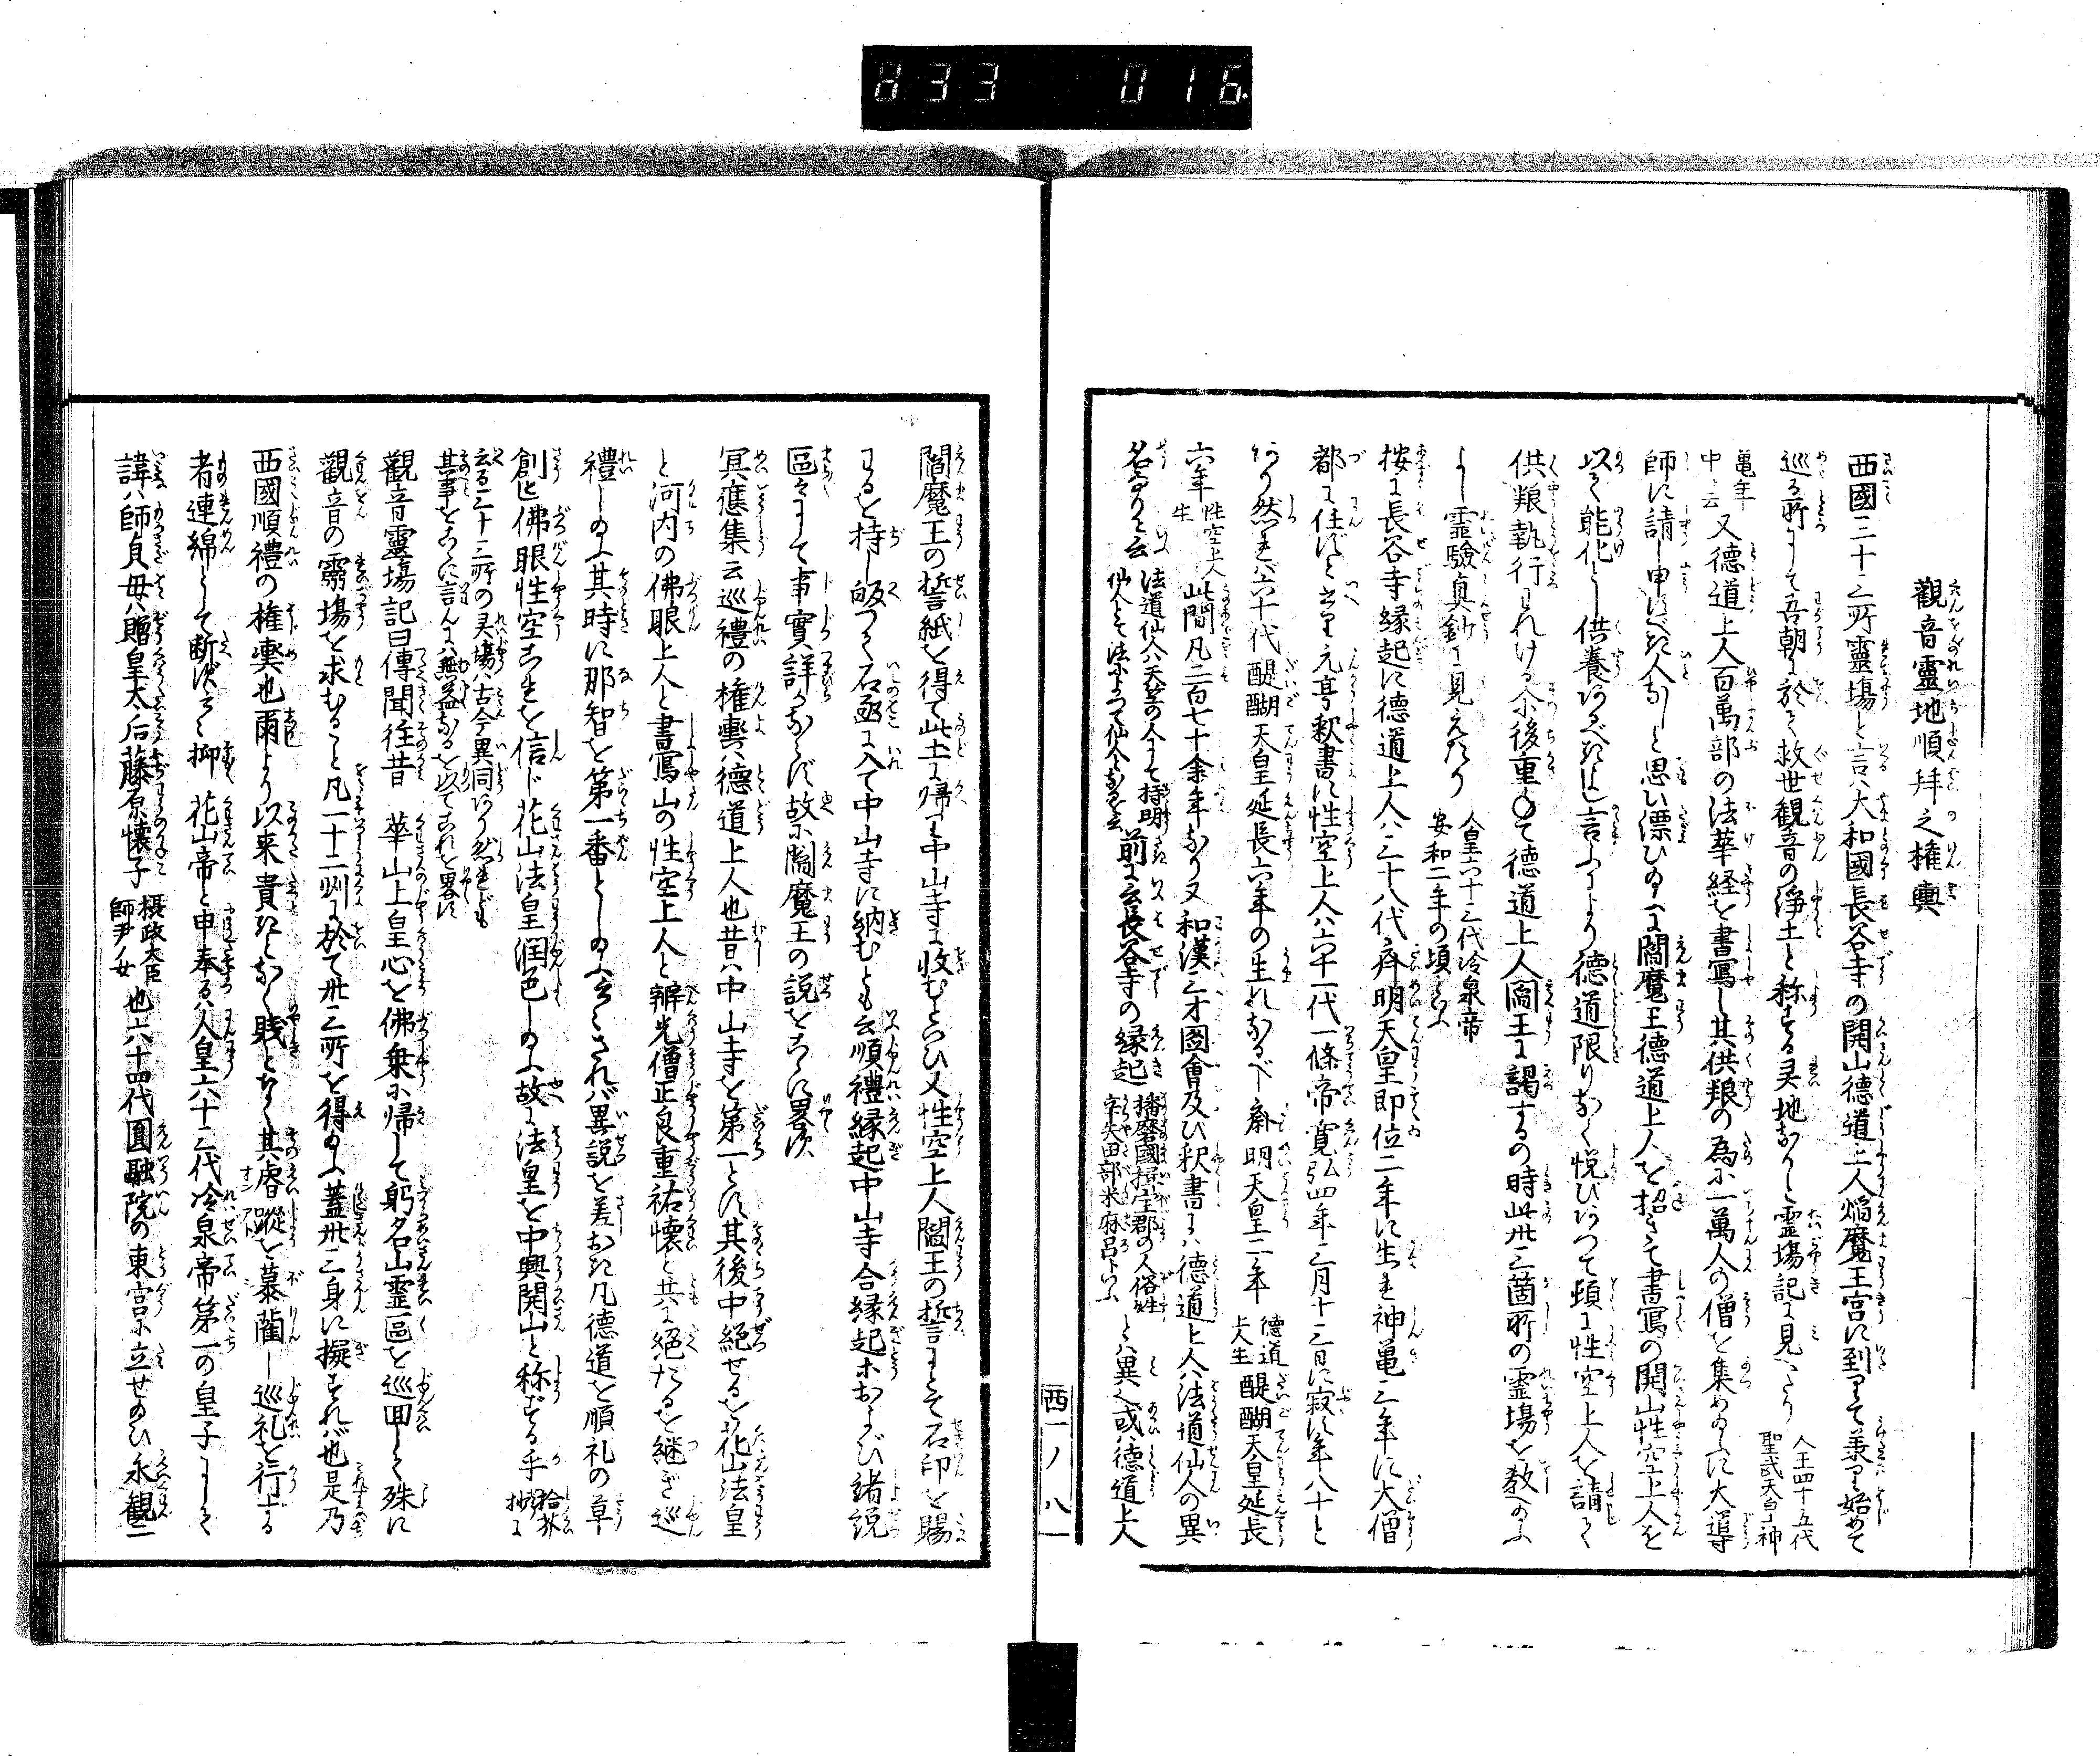 833 016.
觀音靈地順拜之権輿
西國三十三所靈場と言ハ大和國長谷寺の開山德道上人焔魔王宮に到りて兼て始めて
巡る所にして吾朝に於て救世観音の浄土と称する灵地なりと霊場記に見へたり 人王四十五代聖武天皇神
亀年中云 又德道上人百萬部の法華経を書寫し其供粮の為に一萬人の僧を集め給ふに大導
師に請し申すべき人なしと思ひ漂ひ給ふに閻魔王德道上人を招きて書寫の開山性空上人を
以て能化とし供養あるべきよし言ふにより德道限りなく悦びあつて頓に性空上人を請て
供粮執行されける尓後重ねて德道上人閻王に謁するの時此卅三箇所の霊場を教へ給ふ
よし霊驗真鈔に見えたり 人皇六十三代冷泉帝安和二年の頃といふ
按に長谷寺縁起に德道上人ハ三十八代斉明天皇即位二年に生れ神亀三年に大僧
都に任ずと云り元亨釈書に性空上人ハ六十一代一條帝寛弘四年三月十三日に寂す年八十と
あり然れバ六十代醍醐天皇延長六年の生れなるべし斉明天皇二年 德道上人生 醍醐天皇延長
六年 性空上人生 此間凡二百七十余年なり又和漢三才圖會及び釈書にハ德道上人ハ法道仙人の異
名なりと云 法道仙人ハ天竺の人にて持明仙人とて法によつて仙人となると云 前に云長谷寺の縁起 播磨國揖宝郡の人俗姓辛矢田部米麻呂トいふ とハ異へ或ハ德道上人
西一ノ八
閻魔王の誓紙を得て此土に帰り中山寺に收むといひ又性空上人閻王の誓言にて石印を賜
するを持し皈つて石凾に入て中山寺に納むとも云順禮縁起中山寺合縁起ホおよび諸説
區々にして事實詳ならず故に閻魔王の説をこゝに畧す
冥應集云巡禮の権輿ハ德道上人也昔ハ中山寺を第一とす其後中絶せるを花山法皇
と河内の佛眼上人と書寫山の性空上人と辨光僧正良重祐懐と共に絶たるを継ぎ巡
禮し給ふ其時に那智を第一番とし給ふ云々されバ異説を差おき凡德道を順礼の草
創とし佛眼性空これを信じ花山法皇潤色し給ふ故に法皇を中興開山と称ずる乎 拾芥抄に
云る三十三所の灵場ハ古今異同あり然れども其事をこゝに言んにハ無益なるを以てこれを畧す
觀音靈塲記曰傳聞往昔 華山上皇心を佛乗に帰して躬名山霊區を巡囬して殊に
觀音の霛塲を求むること凡一十二州に於て卅三所を得給ふ蓋卅三身に擬すれバ也是乃
西國順禮の権輿也爾より以来貴きとなく賎となく其睿蹤を慕藺し巡礼を行ずる
者連綿として断ず云々抑 花山帝と申奉るハ人皇六十三代冷泉帝第一の皇子にして
諱ハ師貞毋ハ贈皇太后藤原懐子 摂政大臣師尹ノ女 也六十四代圓融院の東宮に立せ給ひ永觀二